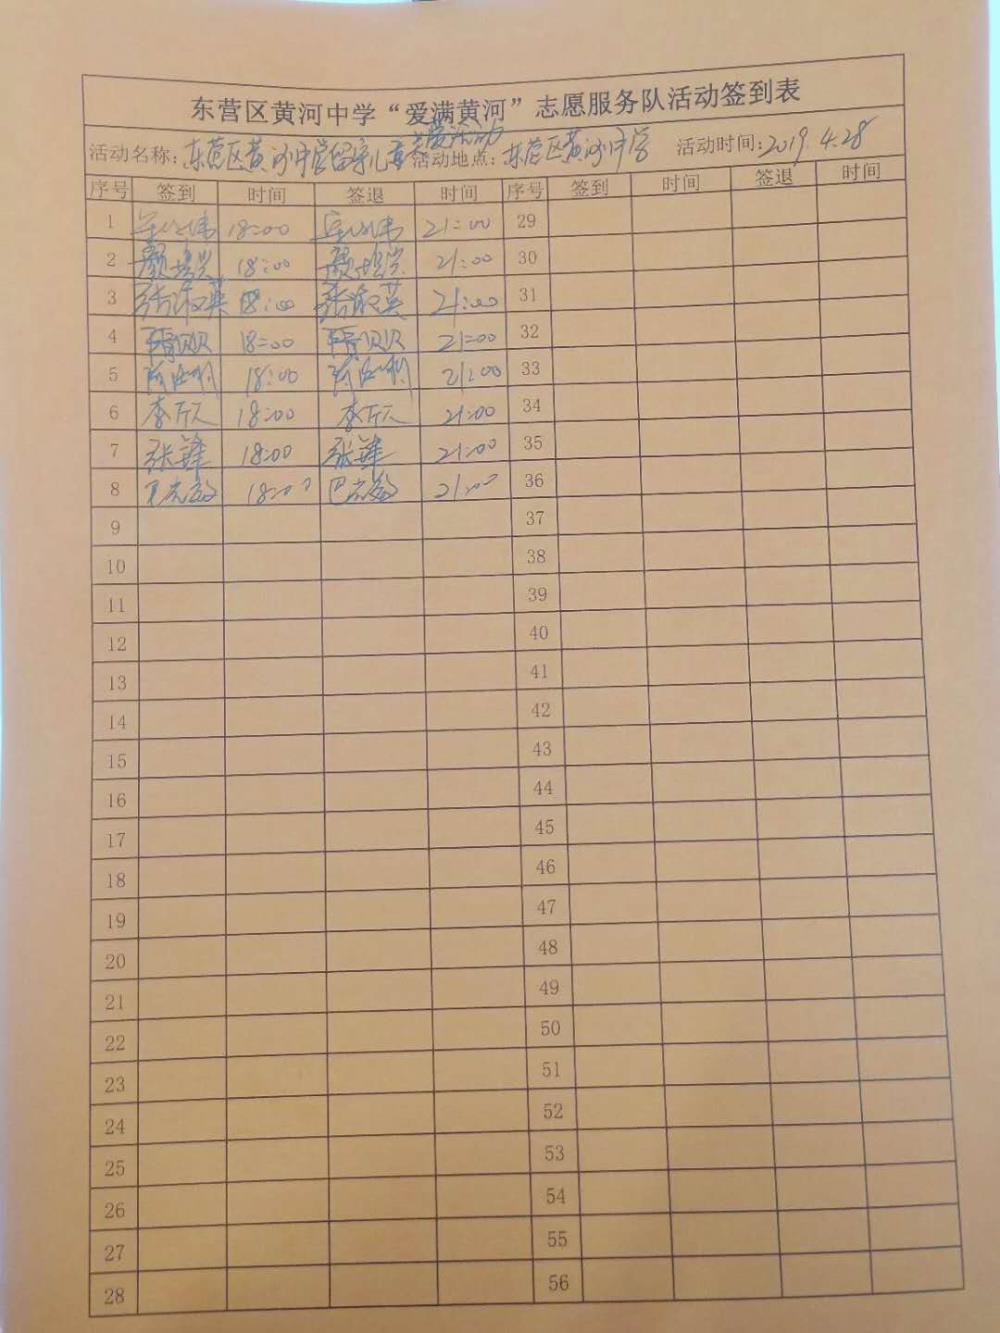 东营区黄河中学“爱满黄河”志愿服务队活动签到表
活动名称:东营区黄河中学留守儿童 活动 活动地点:东营区黄河中学 活动时间:2019.4.28
序号 签到 时间 签退 时间 序号 签到 时间 签退 时间
1 18:00 21:00 29
2 颜培兴 18:00 颜培兴 21:00 30
3 张淑英 18:00 张淑英 21:00 31
4 18:00 21:00 32
5 18:00 21:00 33
6 李斤 18:00 李斤 21:00 34
7 张锋 18:00 张锋 21:00 35
8 18:00 21:00 36
9 37
10 38
11 39
12 40
13 41
14 42
15 43
16 44
17 45
18 46
19 47
20 48
21 49
22 50
23 51
24 52
25 53
26 54
27 55
28 56